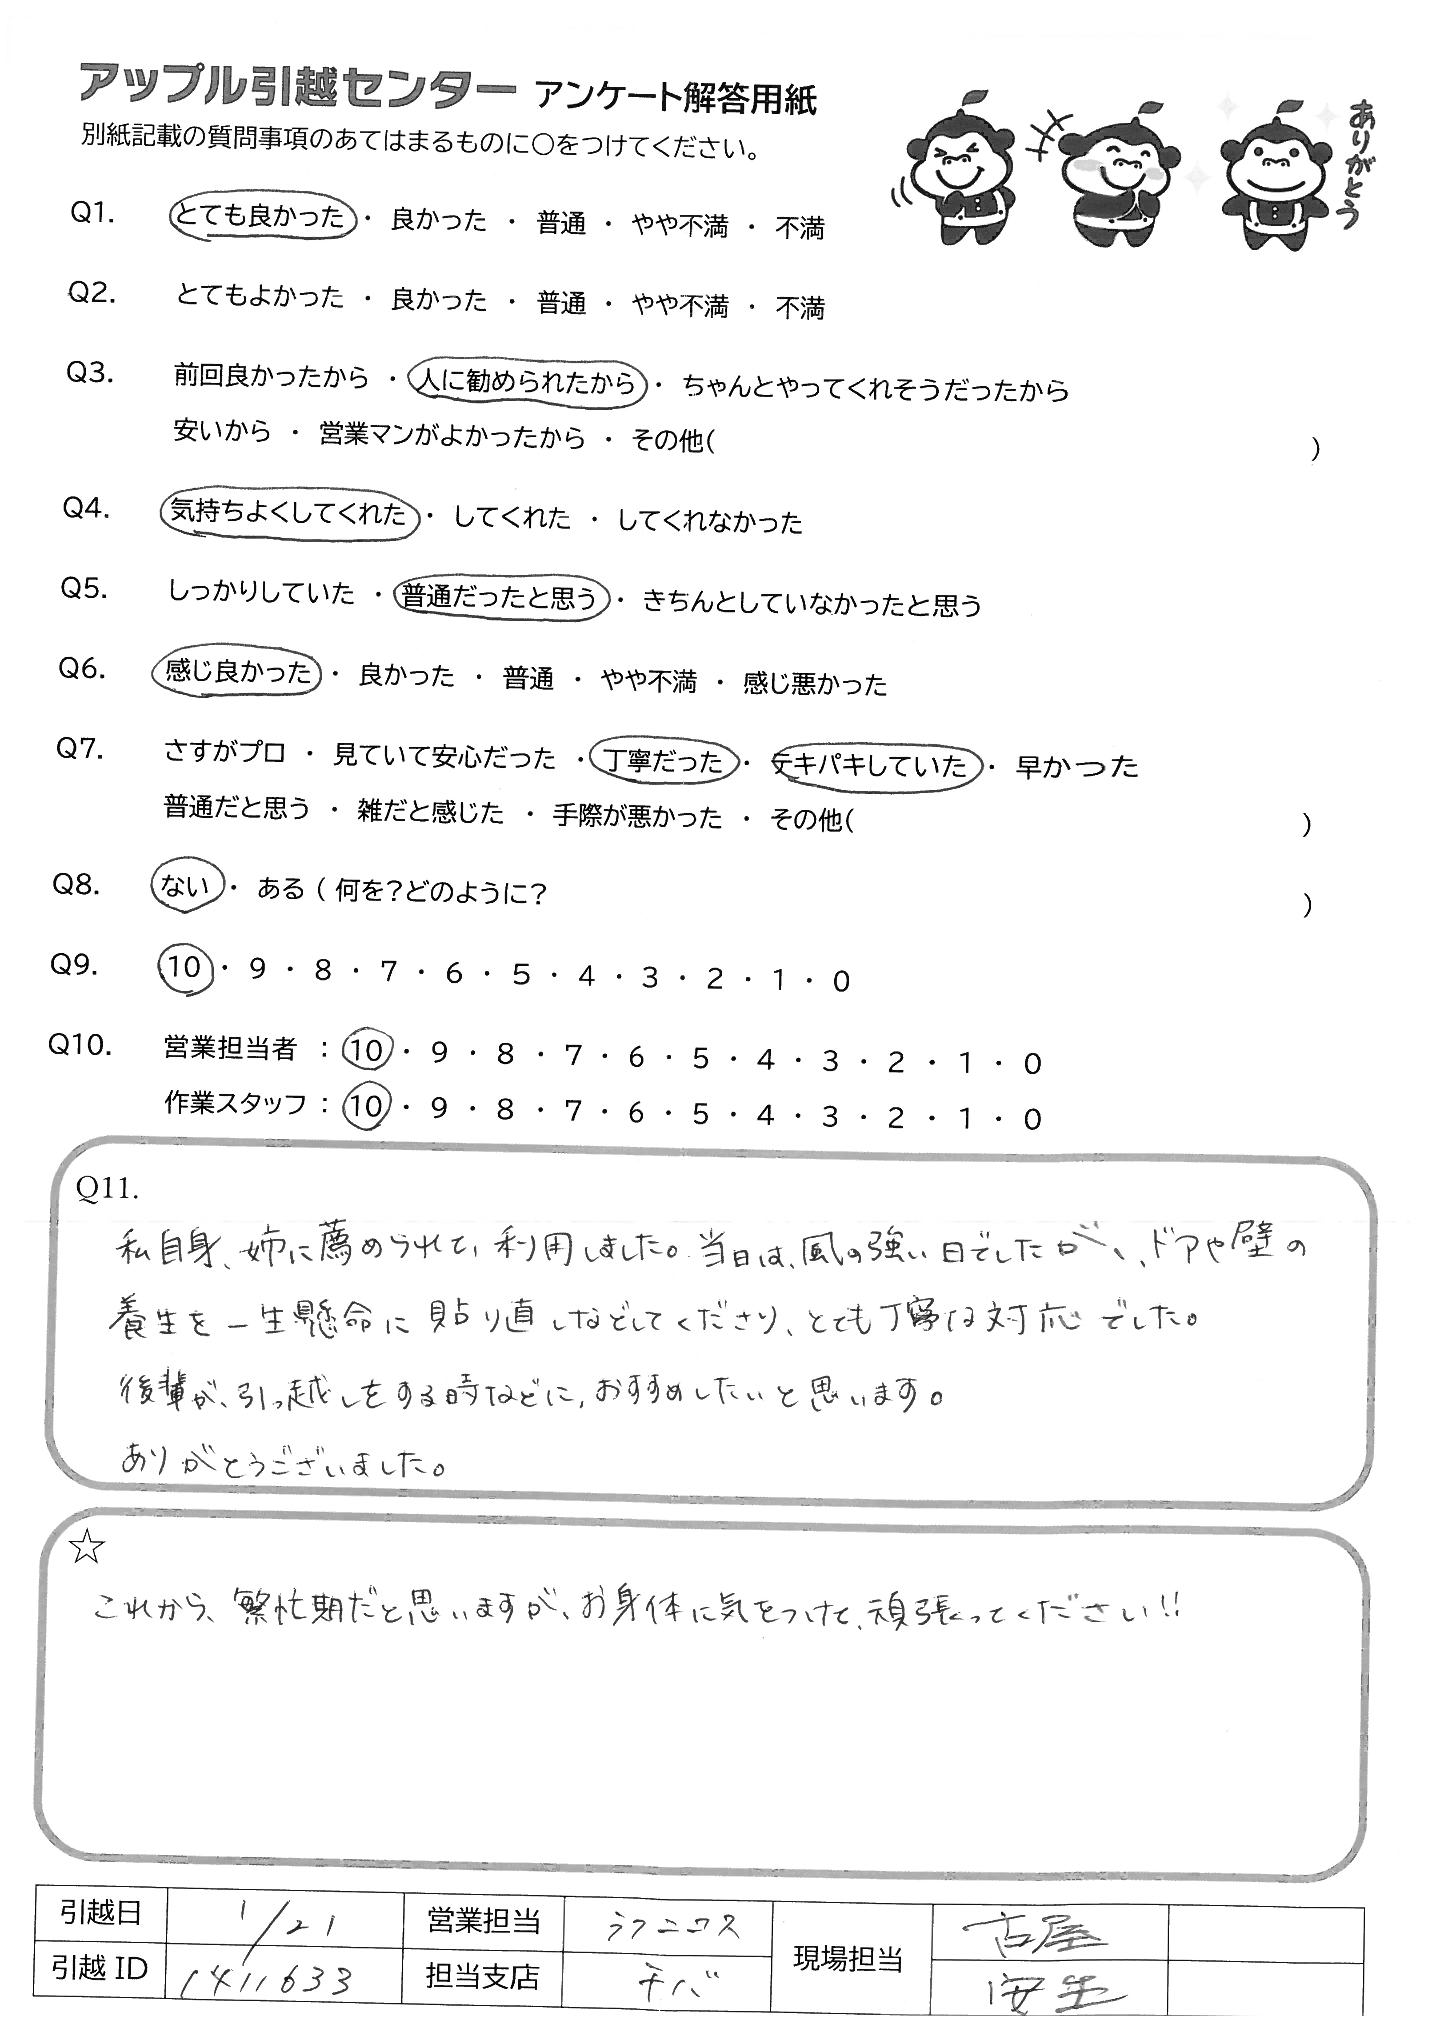 アップル引越センター アンケート解答用紙
別紙記載の質問事項のあてはまるものに○をつけてください。
ありがとう
Q1. とても良かった ・ 良かった ・ 普通 ・ やや不満 ・ 不満
Q2. とてもよかった ・ 良かった ・ 普通 ・ やや不満 ・ 不満
Q3. 前回良かったから ・ 人に勧められたから ・ ちゃんとやってくれそうだったから
安いから ・ 営業マンがよかったから ・ その他( )
Q4. 気持ちよくしてくれた ・ してくれた ・ してくれなかった
Q5. しっかりしていた ・ 普通だったと思う ・ きちんとしていなかったと思う
Q6. 感じ良かった ・ 良かった ・ 普通 ・ やや不満 ・ 感じ悪かった
Q7. さすがプロ ・ 見ていて安心だった ・ 丁寧だった ・ テキパキしていた ・ 早かつた
普通だと思う ・ 雑だと感じた ・ 手際が悪かった ・ その他( )
Q8. ない ・ ある ( 何を?どのように? )
Q9. 10 ・ 9 ・ 8 ・ 7 ・ 6 ・ 5 ・ 4 ・ 3 ・ 2 ・ 1 ・ 0
Q10. 営業担当者 : 10 ・ 9 ・ 8 ・ 7 ・ 6 ・ 5 ・ 4 ・ 3 ・ 2 ・ 1 ・ 0
作業スタッフ : 10 ・ 9 ・ 8 ・ 7 ・ 6 ・ 5 ・ 4 ・ 3 ・ 2 ・ 1 ・ 0
Q11.
私自身、姉に薦められて、利用しました。当日は、風の強い日でしたが、、ドアや壁の
養生を一生懸命に貼り直しなどしてくださり、とても丁寧な対応でした。
後輩が、引っ越しをする時などに、おすすめしたいと思います。
ありがとうございました。
☆
これから、繁忙期だと思いますが、お身体に気をつけて、頑張ってください!!
引越日 1/21 営業担当 ラフニコス 現場担当 古屋
引越 ID 1411633 担当支店 チバ 安生